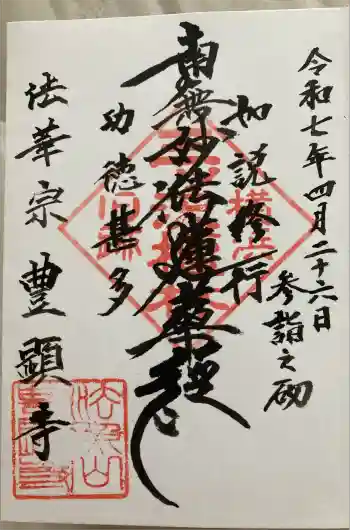 令和七年四月二十六日
参詣之砌
如説修行
南無妙法蓮華経
功徳甚多
法華宗 豊顕寺
法照山